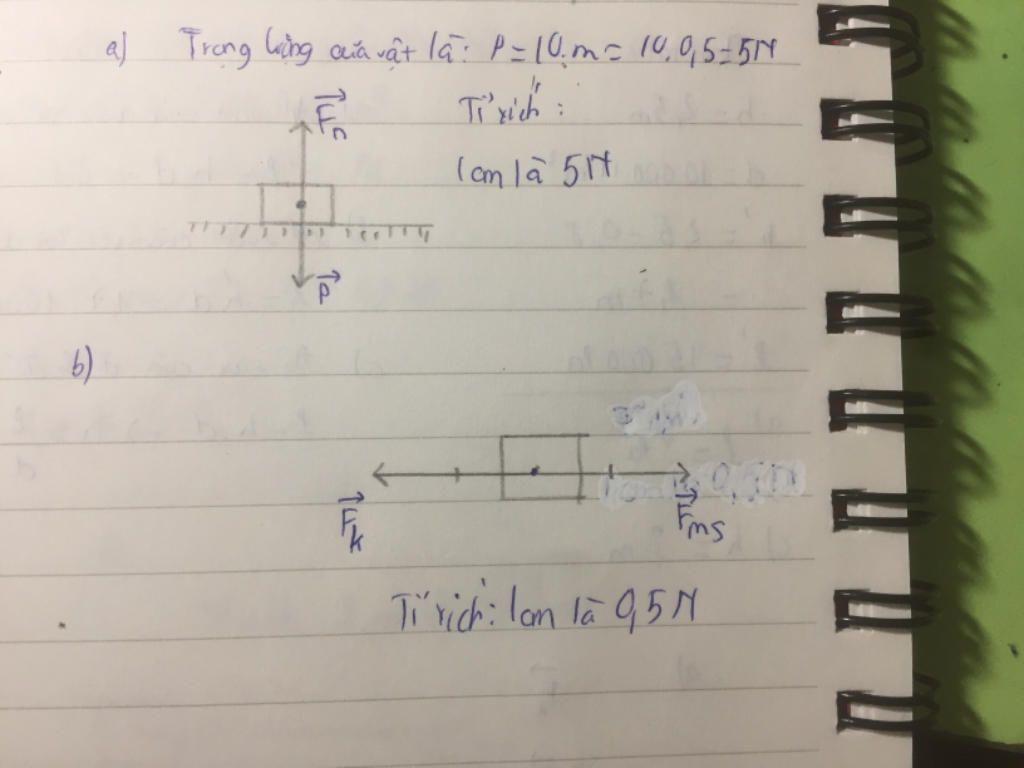 a) Trọng lượng của vật là: P = 10.m = 10.0,5 = 5N
Fn
Tỉ xích:
1cm là 5N
P
b)
Fk
Fms
Tỉ xích: 1cm là 0,5N